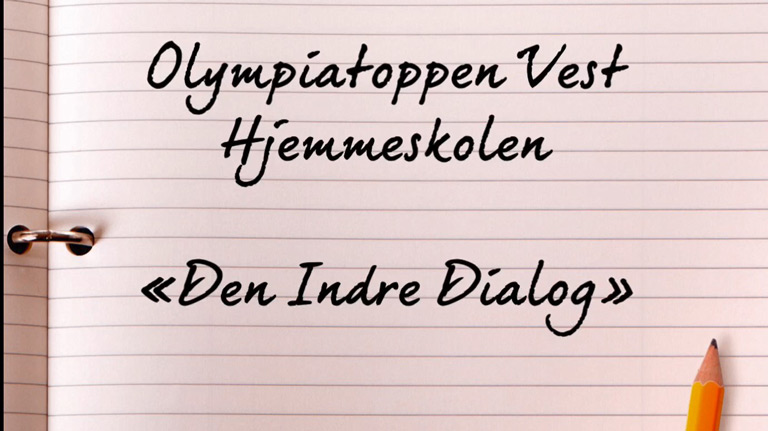 Olympiatoppen Vest
Hjemmeskolen
«Den Indre Dialog»